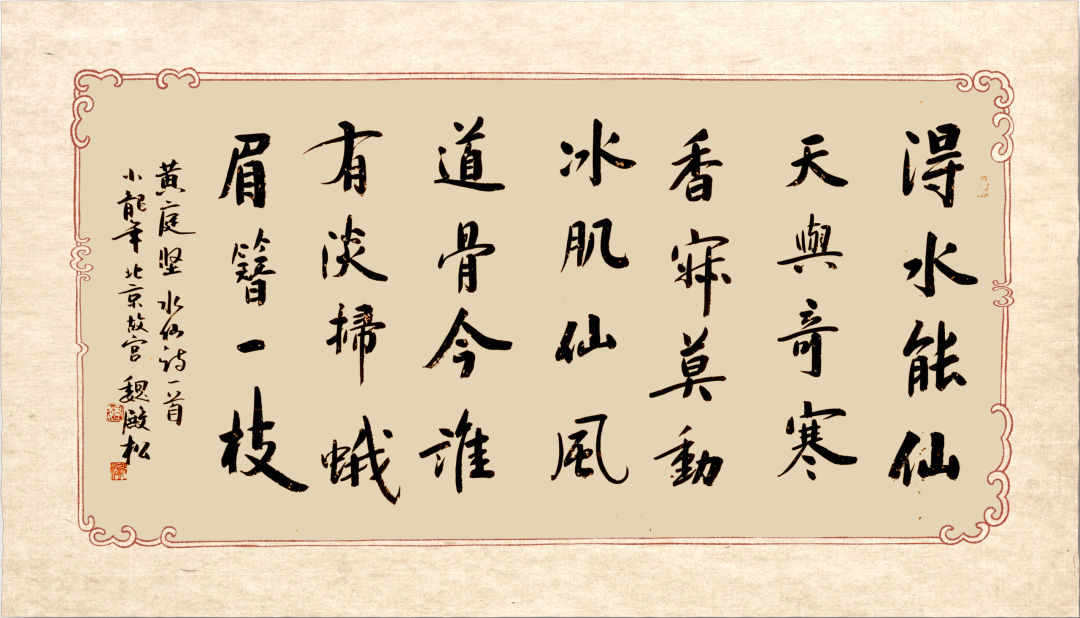 得水能仙
天與奇寒
香寂莫動
冰肌仙風
道骨今誰
有淡掃蛾
眉簪一枝
黄庭坚水仙诗一首
小龍年北京故宫魏殿松